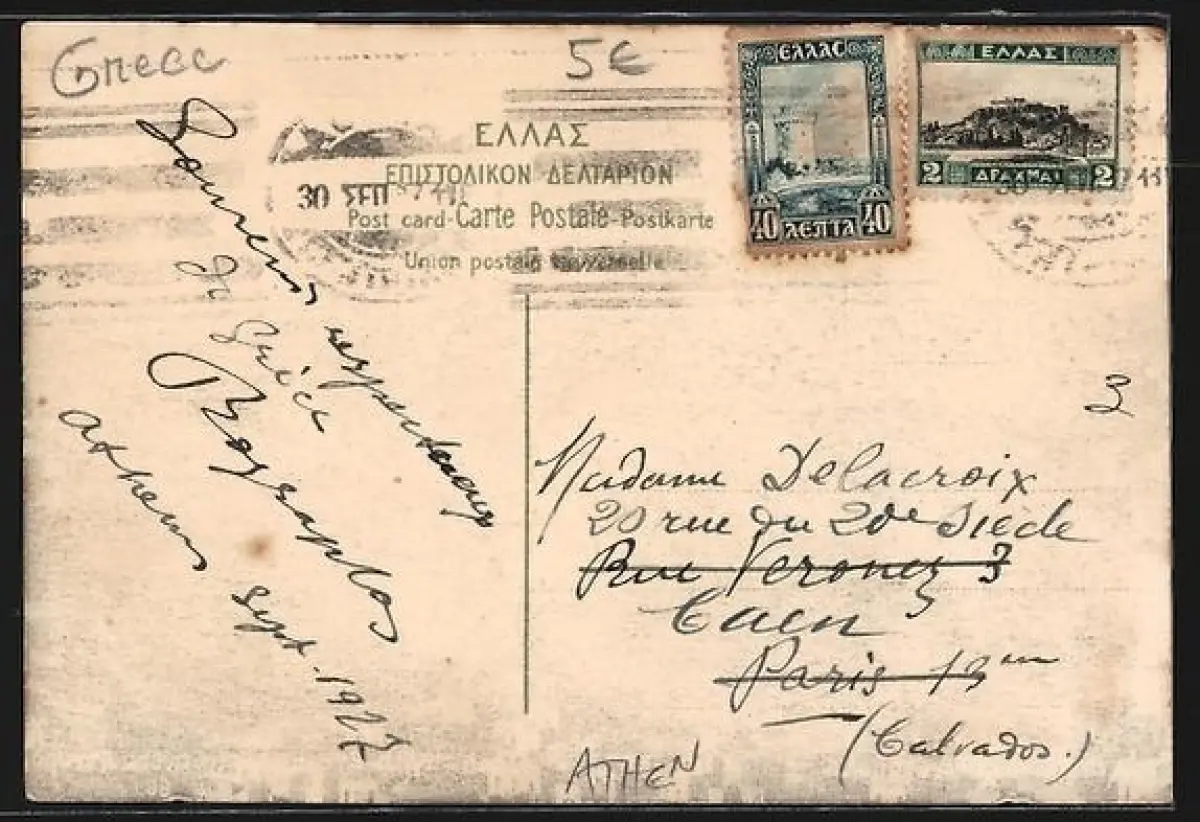 Grece
5€
ΕΛΛΑΣ
ΕΠΙΣΤΟΛΙΚΟΝ ΔΕΛΤΑΡΙΟΝ
Post card-Carte Postale-Postkarte
Union postale universelle
30 ΣΕΠ
ΕΛΛΑΣ
40 ΛΕΠΤΑ 40
ΕΛΛΑΣ
2 ΔΡΑΧΜΑΙ 2
Souvenirs respectueux
de Grèce
Athenes sept. 1927
3
Madame Delacroix
20 rue du 20de Siècle
Rue Veronez 3
Caen
Paris 13me
(Calvados.)
ATHEN